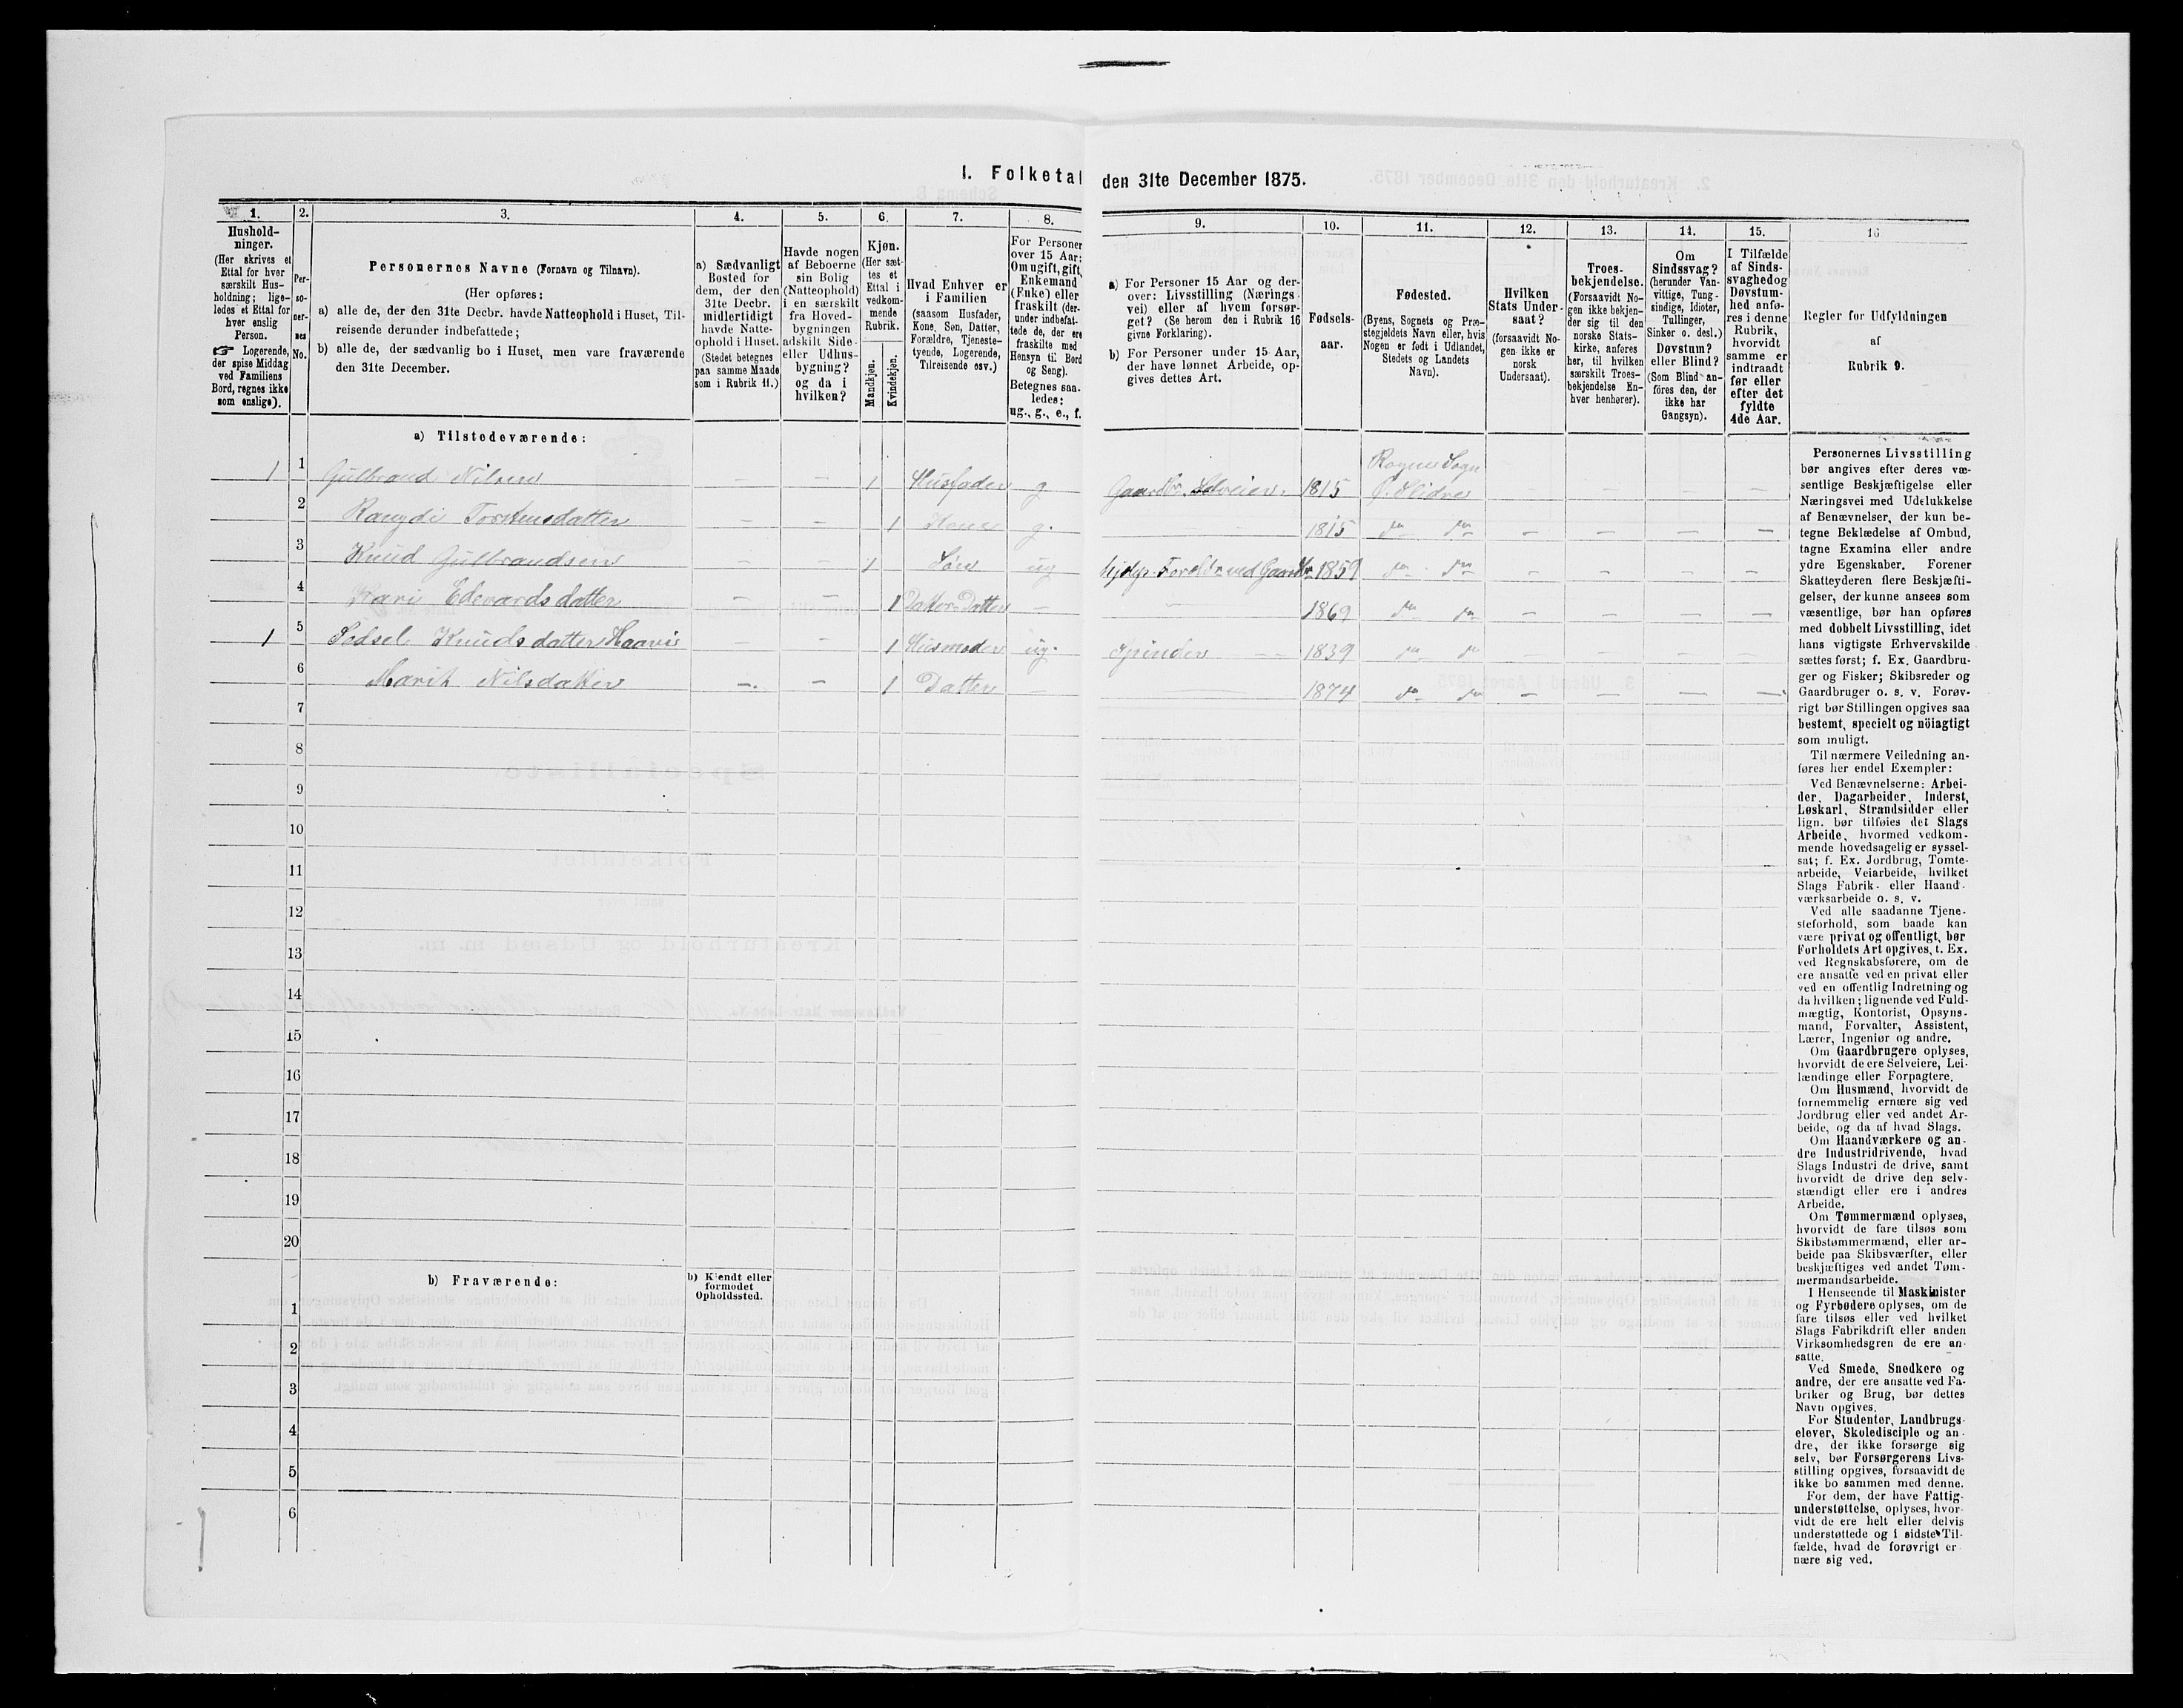 I. Folketal den 31te December 1875.
1.
Hushold-
ninger.
(Her skrives et
Ettal for hver
særskilt Hus-
holdning; lige-
ledes et Ettal for
hver enslig
Person.
Logerende,
der spise Middag
ved Familiens
Bord, regnes ikke
som enslige).
2.
Per-
so-
ner-
nes
No.
3.
Personernes Navne (Fornavn og Tilnavn).
(Her opføres:
a) alle de, der den 31te Decbr. havde Natteophold i Huset, Til-
reisende derunder indbefattede;
b) alle de, der sædvanlig bo i Huset, men vare fraværende
den 31te December.
4.
a) Sædvanligt
Bosted for
dem, der den
31te Decbr.
midlertidigt
havde Natte-
ophold i Huset.
(Stedet betegnes
paa samme Maade
som i Rubrik 11.)
5.
Havde nogen
af Beboerne
sin Bolig
(Natteophold)
i en særskilt
fra Hoved-
bygningen
adskilt Side-
eller Udhus-
bygning?
og da i
hvilken?
6.
Kjøn.
(Her sæt-
tes et
Ettal i
vedkom-
mende
Rubrik.
Mandkjøn.
Kvindekjøn.
7.
Hvad Enhver er
i Familien
(saasom Husfader,
Kone, Søn, Datter,
Forældre, Tjeneste-
tyende, Logerende,
Tilreisende osv.)
8.
For Personer
over 15 Aar:
Om ugift, gift,
Enkemand
(Enke) eller
fraskilt (der-
under indbefat-
tede de, der ere
fraskilte med
Hensyn til Bord
og Seng).
Betegnes saa-
ledes:
ug., g., e., f.
9.
a) For Personer 15 Aar og der-
over: Livsstilling (Nærings-
vei) eller af hvem forsør-
get? (Se herom den i Rubrik 16
givne Forklaring).
b) For Personer under 15 Aar,
der have lønnet Arbeide, op-
gives dettes Art.
10.
Fødsels-
aar.
11.
Fødested.
(Byens, Sognets og Præ-
stegjeldets Navn eller, hvis
Nogen er født i Udlandet,
Stedets og Landets
Navn).
12.
Hvilken
Stats Under-
saat?
(forsaavidt No-
gen ikke er
norsk
Undersaat).
13.
Troes-
bekjendelse.
(Forsaavidt No-
gen ikke bekjen-
der sig til den
norske Stats-
kirke, anføres
her, til hvilken
særskilt Troes-
bekjendelse En-
hver henhører).
14.
Om
Sindssvag?
(herunder Van-
vittige, Tung-
sindige, Idioter,
Tullinger,
Sinker o. desl.)
Døvstum?
eller Blind?
(Som Blind an-
føres den, der
ikke har
Gangsyn).
15.
I Tilfælde
af Sinds-
svaghed og
Døvstum-
hed anfø-
res i denne
Rubrik,
hvorvidt
samme er
indtraadt
før eller
efter det
fyldte
4de Aar.
16
Regler for Udfyldningen
af
Rubrik 9.
a) Tilstedeværende:
1 1 Gulbrand Nilsen – – 1 Husfader g Gaardbr. Selveier. 1815 Rogne Sogn Ø. Slidre – – – –
2 Rangdi Torstensdatter – – 1 Kone g. 1815 do do – – – –
3 Knud Gulbrandsen – – 1 Søn ug Hjelper Foreldr. med Gaardbr. 1859 do do – – – –
4 Kari Edevardsdatter – – 1 Datter-Datter – 1869 do do – – – –
1 5 Sedsel Knudsdatter Haavi – – 1 Husmoder ug. Spinder 1839 do do – – – –
6 Marit Nilsdatter – – 1 Datter – 1874 do do – – – –
7
8
9
10
11
12
13
14
15
16
17
18
19
20
b) Fraværende:
b) Kjendt eller
formodet
Opholdssted.
1
2
3
4
5
6
Personernes Livsstilling
bør angives efter deres væ-
sentlige Beskjæftigelse eller
Næringsvei med Udelukkelse
af Benævnelser, der kun be-
tegne Beklædelse af Ombud,
tagne Examina eller andre
ydre Egenskaber. Forener
Skatteyderen flere Beskjæfti-
gelser, der kunne ansees som
væsentlige, bør han opføres
med dobbelt Livsstilling, idet
hans vigtigste Erhvervskilde
sættes først; f. Ex. Gaardbru-
ger og Fisker; Skibsreder og
Gaardbruger o. s. v. Forøv-
rigt bør Stillingen opgives saa
bestemt, specielt og nöiagtigt
som muligt.
Til nærmere Veiledning an-
føres her endel Exempler:
Ved Benævnelserne: Arbei-
der, Dagarbeider, Inderst,
Løskarl, Strandsidder eller
lign. bør tilføies det Slags
Arbeide, hvormed vedkom-
mende hovedsagelig er syssel-
sat; f. Ex. Jordbrug, Tomte-
arbeide, Veiarbeide, hvilket
Slags Fabrik- eller Haand-
værksarbeide o. s. v.
Ved alle saadanne Tjene-
steforhold, som baade kan
være privat og offentligt, bør
Forholdets Art opgives, t. Ex.
ved Regnskabsførere, om de
ere ansatte ved en privat eller
ved en offentlig Indretning og
da hvilken; lignende ved Fuld-
mægtig, Kontorist, Opsyns-
mand, Forvalter, Assistent,
Lærer, Ingeniør og andre.
Om Gaardbrugere oplyses,
hvorvidt de ere Selveiere, Lei-
lændinge eller Forpagtere.
Om Husmænd, hvorvidt de
fornemmelig ernære sig ved
Jordbrug eller ved andet Ar-
beide, og da af hvad Slags.
Om Haandværkere og an-
dre Industridrivende, hvad
Slags Industri de drive, samt
hvorvidt de drive den selv-
stændigt eller ere i andres
Arbeide.
Om Tømmermænd oplyses,
hvorvidt de fare tilsøs som
Skibstømmermænd, eller ar-
beide paa Skibsværfter, eller
beskjæftiges ved andet Tøm-
mermandsarbeide.
I Henseende til Maskinister
og Fyrbødere oplyses, om de
fare tilsøs eller ved hvilket
Slags Fabrikdrift eller anden
Virksomhedsgren de ere an-
satte.
Ved Smede, Snedkere og
andre, der ere ansatte ved Fa-
briker og Brug, bør dettes
Navn opgives.
For Studenter, Landbrugs-
elever, Skoledisciple og an-
dre, der ikke forsørge sig
selv, bør Forsørgerens Livs-
stilling opgives, forsaavidt de
ikke bo sammen med denne.
For dem, der have Fattig-
understøttelse, oplyses, hvor-
vidt de ere helt eller delvis
understøttede og i sidste Til-
fælde, hvad de forøvrigt er-
nære sig ved.